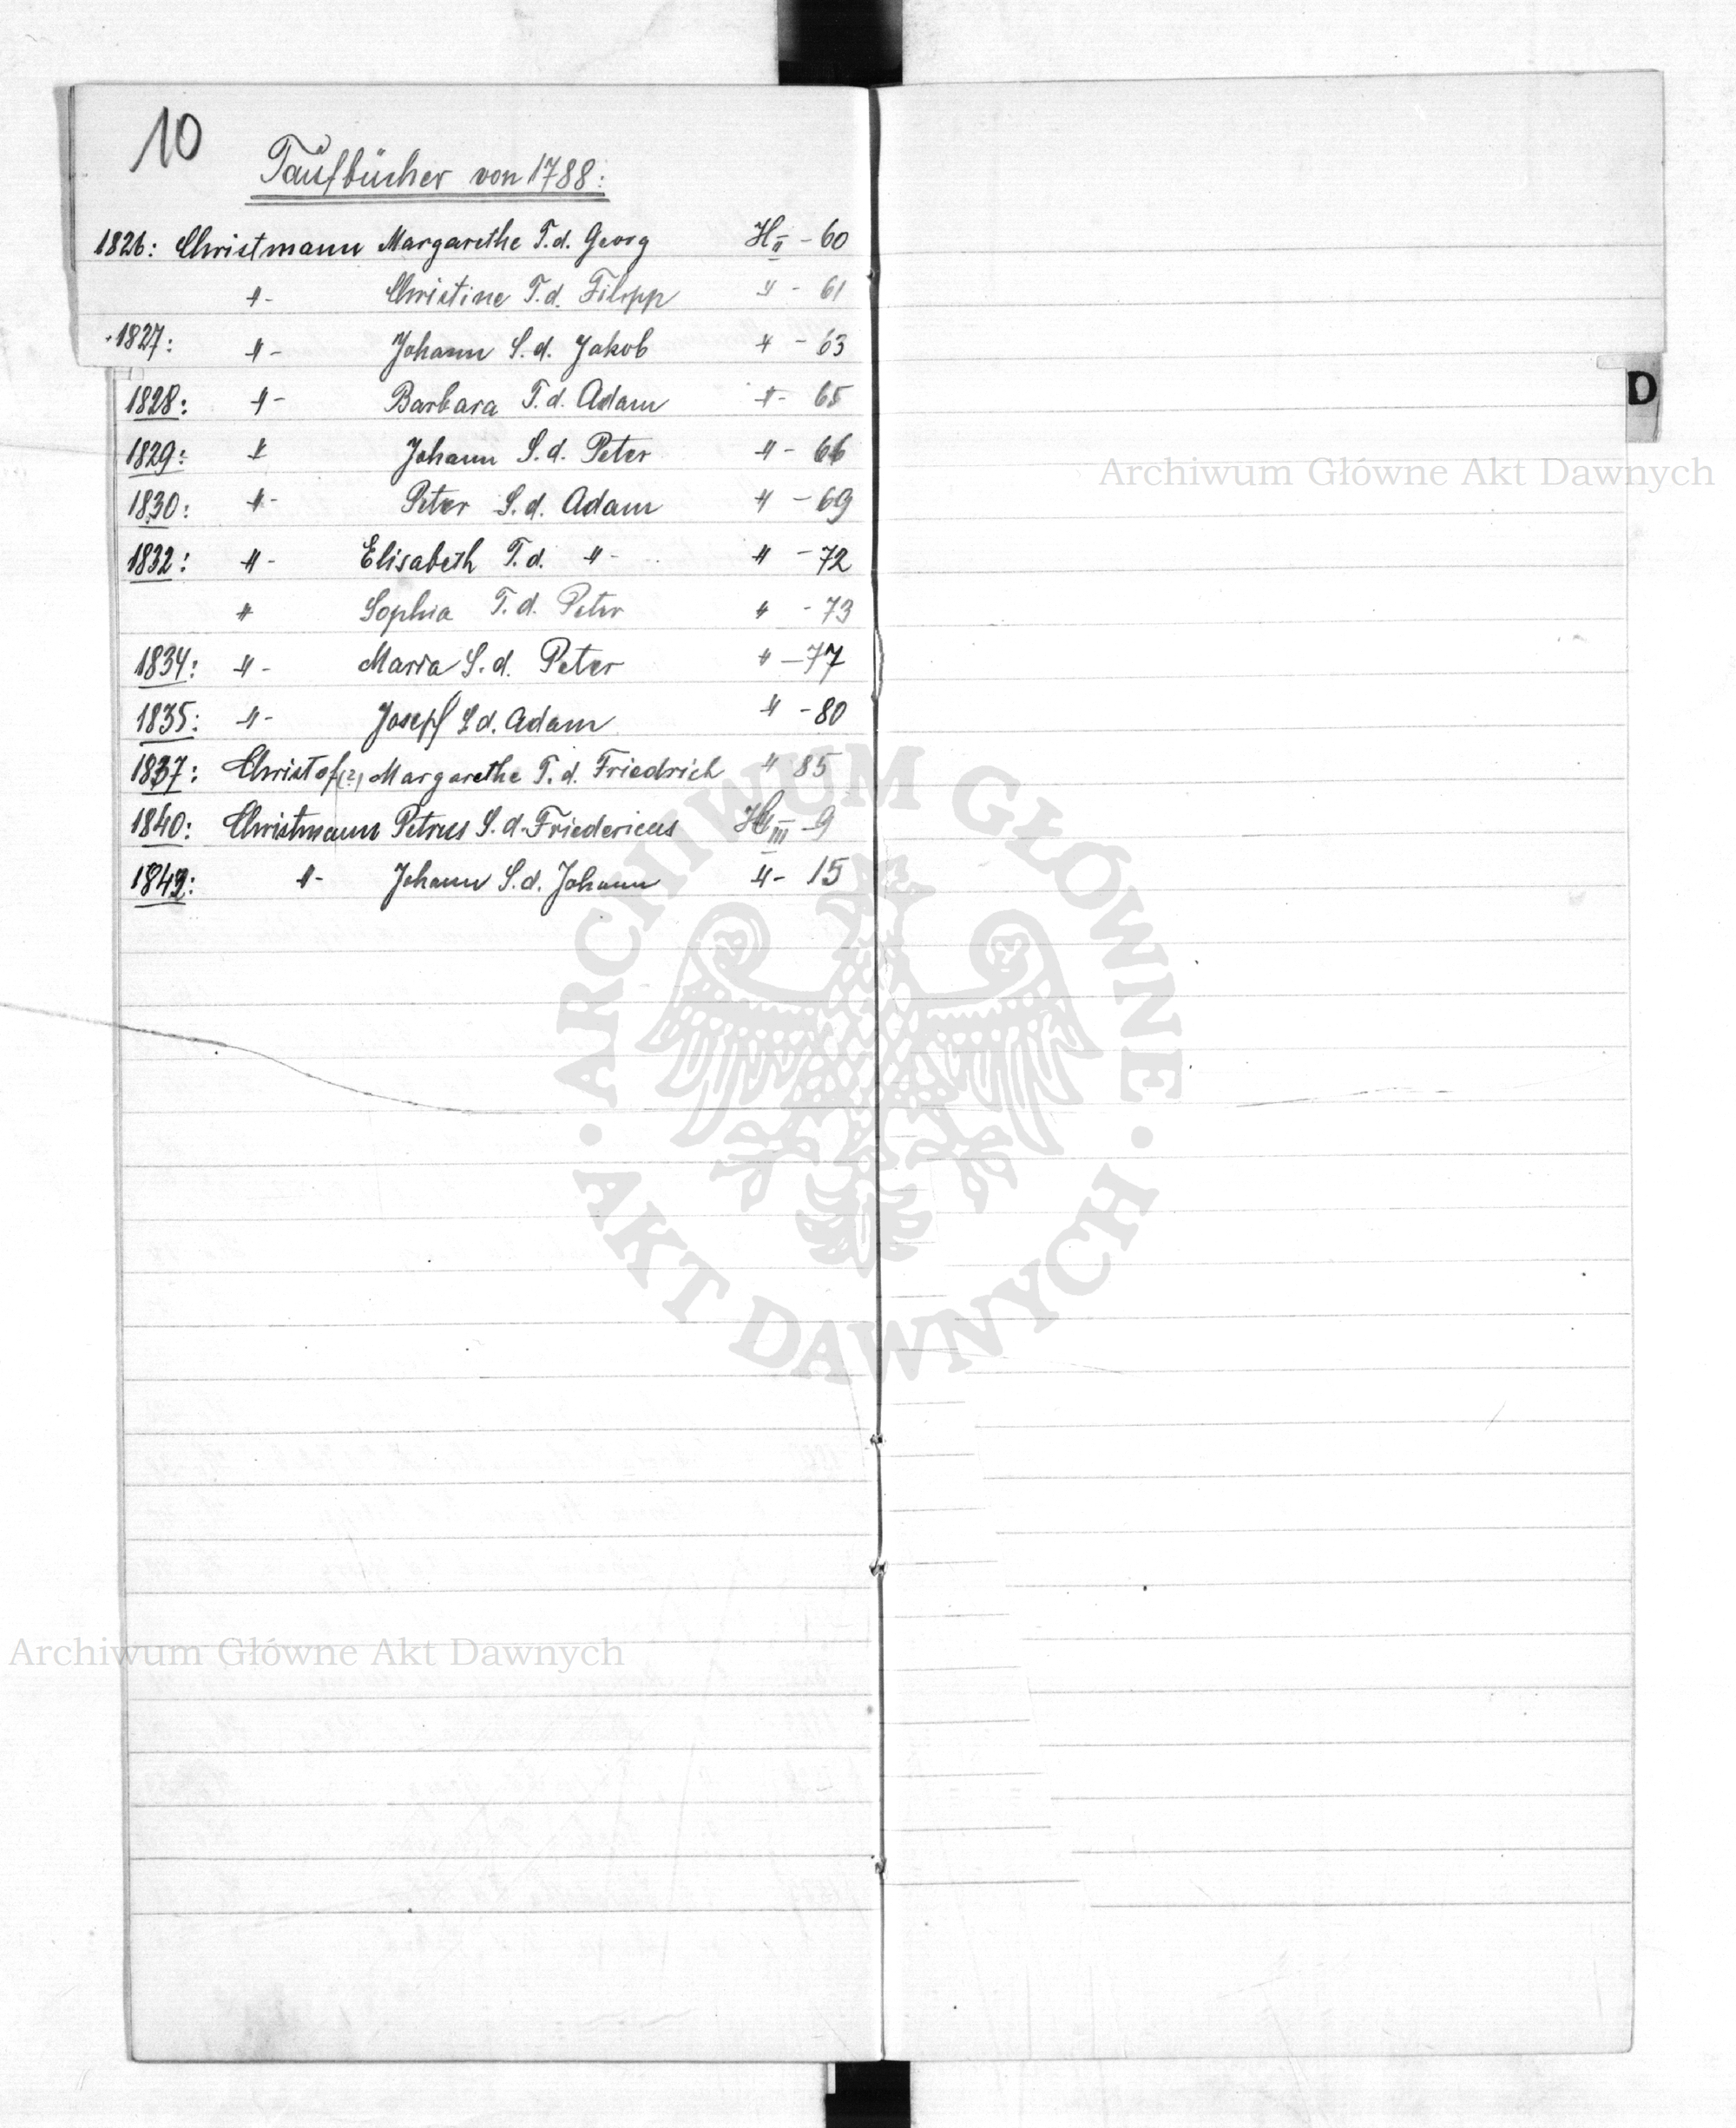 10
Taufbücher von 1788:
1826: Christmann Margarethe T.d. Georg H II - 60
-"- Christine T.d. Filipp " - 61
1827: -"- Johann S.d. Jakob " - 63
1828: -"- Barbara T.d. Adam -"- 65
1829: " Johann S.d. Peter -"- 66
1830: -"- Peter S.d. Adam " - 69
1832: -"- Elisabeth T.d. -"- " - 72
" Sophia T.d. Peter " - 73
1834: -"- Maria S.d. Peter " - 77
1835: -"- Josef S.d. Adam " - 80
1837: Christof(?) Margarethe T.d. Friedrich " 85
1840: Christmann Petrus S.d. Friedericus H III - 9
1842: -"- Johann S.d. Johann -"- 15
D
Archiwum Główne Akt Dawnych
ARCHIWUM GŁÓWNE
AKT DAWNYCH
Archiwum Główne Akt Dawnych